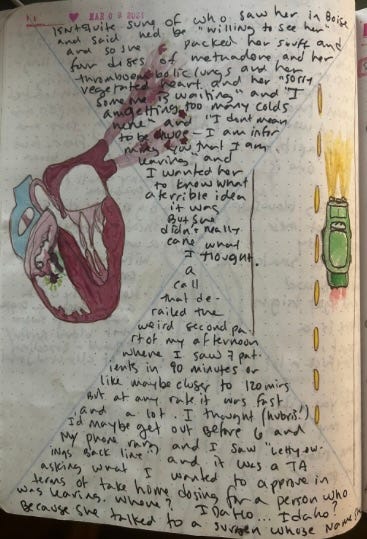 Isn't quite sure of who saw her in Boise
and said he'd be "willing to see her"
and so she packed her stuff and
four doses of methadone and her
thromboembolic lungs and her
vegetated heart and her "sorry
someone is waiting" and "I
am getting too many colds
here" and "I dont mean
to be rude — I am infor
ming you that I am
leaving" and
I wanted her
to know what
a terrible idea
it was
But she
didn't really
care what
I thought.
A
call
that de-
railed the
weird second pa-
rt of my afternoon
where I saw 7 pat-
ients in 90 minutes or
like maybe closer to 120 mins
But at any rate it was fast
and a lot. I thought (hubris!)
I'd maybe get out before 6 and
My phone rang and I saw "Letty ow-
ings Back line" and it was a TA
asking what I wanted to approve in
terms of take home dosing for a person who
was leaving. Where? Idaho... Idaho?
Because she talked to a surgeon whose name she